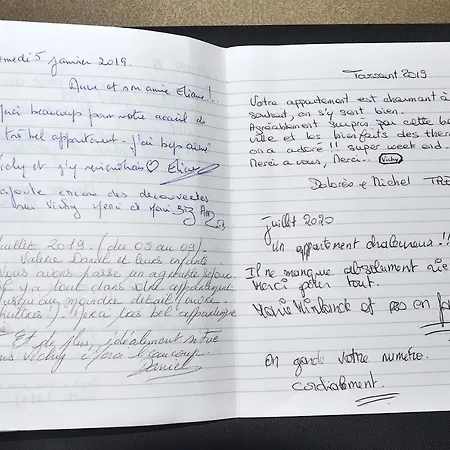 medi 5 janvier 2019.
Anne et son amie Eliane!..
beaucoup pour votre accueil de
très bel appartement. J'ai bcp aimé
Vichy et j'y reviendrais ♡ Eliane
encore des découvertes
sur Vichy
juillet 2019. (du 05 au 09).
Valérie Daniel et leurs enfants.
Nous avons passé un agréable séjour
Il y a tout dans votre appartement
jusqu'au moindre détail
Merci très bel appartement
Et de plus, idéalement situé
Vichy
Daniel
Toussaint 2019.
Votre appartement est charmant à
souhait, on s'y sent bien.
Agréablement surpris par cette be
ville et les bienfaits des ther
on a adoré !! super week end.
Merci à vous, Merci... Vichy
Dolorès & Michel TRE
juillet 2020
Un appartement chaleureux !!
Il ne manque absolument rie
Merci pour tout.
et en fa
On garde votre numéro.
cordialement.